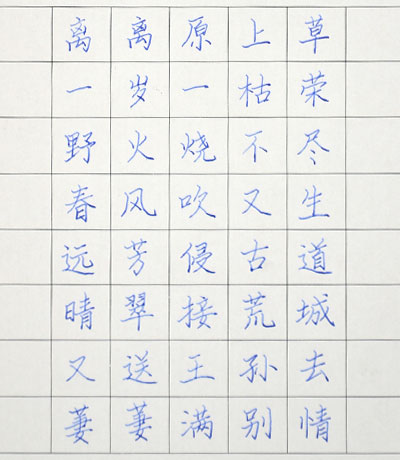 离离原上草
一岁一枯荣
野火烧不尽
春风吹又生
远芳侵古道
晴翠接荒城
又送王孙去
萋萋满别情